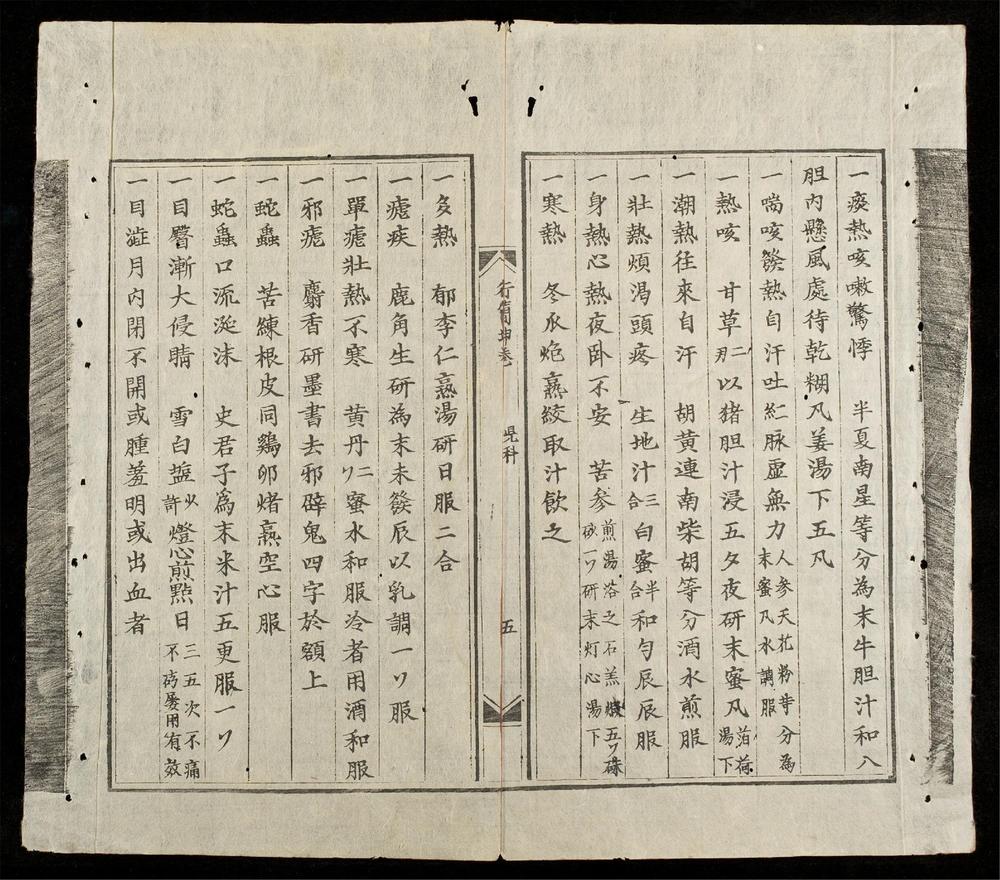 一痰熱咳嗽驚悸　半夏南星等分為末牛胆汁和入
胆内懸風處待乾糊凡姜湯下五凡
一喘咳發熱自汗吐紅脉虚無力人參天花粉等分為末蜜凡水調服
一熱咳　甘草二刃以猪胆汁浸五夕夜研末蜜凡萡荷湯下
一潮熱往來自汗　胡黄連南柴胡等分酒水煎服
一壮熱煩渴頭疼　生地汁三合白蜜半合和匀辰辰服
一身熱心熱夜卧不安　苦參煎湯浴之石羔煅五ソ硃砂一ソ研末灯心湯下
一寒熱　冬瓜炮熹絞取汁飲之
行簡坤卷
兒科
五
一久熱　郁李仁熹湯研日服二合
一瘧疾　鹿角生研為末未發辰以乳調一ソ服
一單瘧壮熱不寒　黄丹二ソ蜜水和服冷者用酒和服
一邪瘧　麝香研墨書去邪辟鬼四字於額上
一蛇蟲　苦練根皮同鷄卵煑熹空心服
一蛇蟲口流涎沫　史君子為末米汁五更服一ソ
一目翳漸大侵睛　雪白塩少許燈心煎點日三五次不痛不疼屡用有效
一目澁月内閉不開或腫羞明或出血者